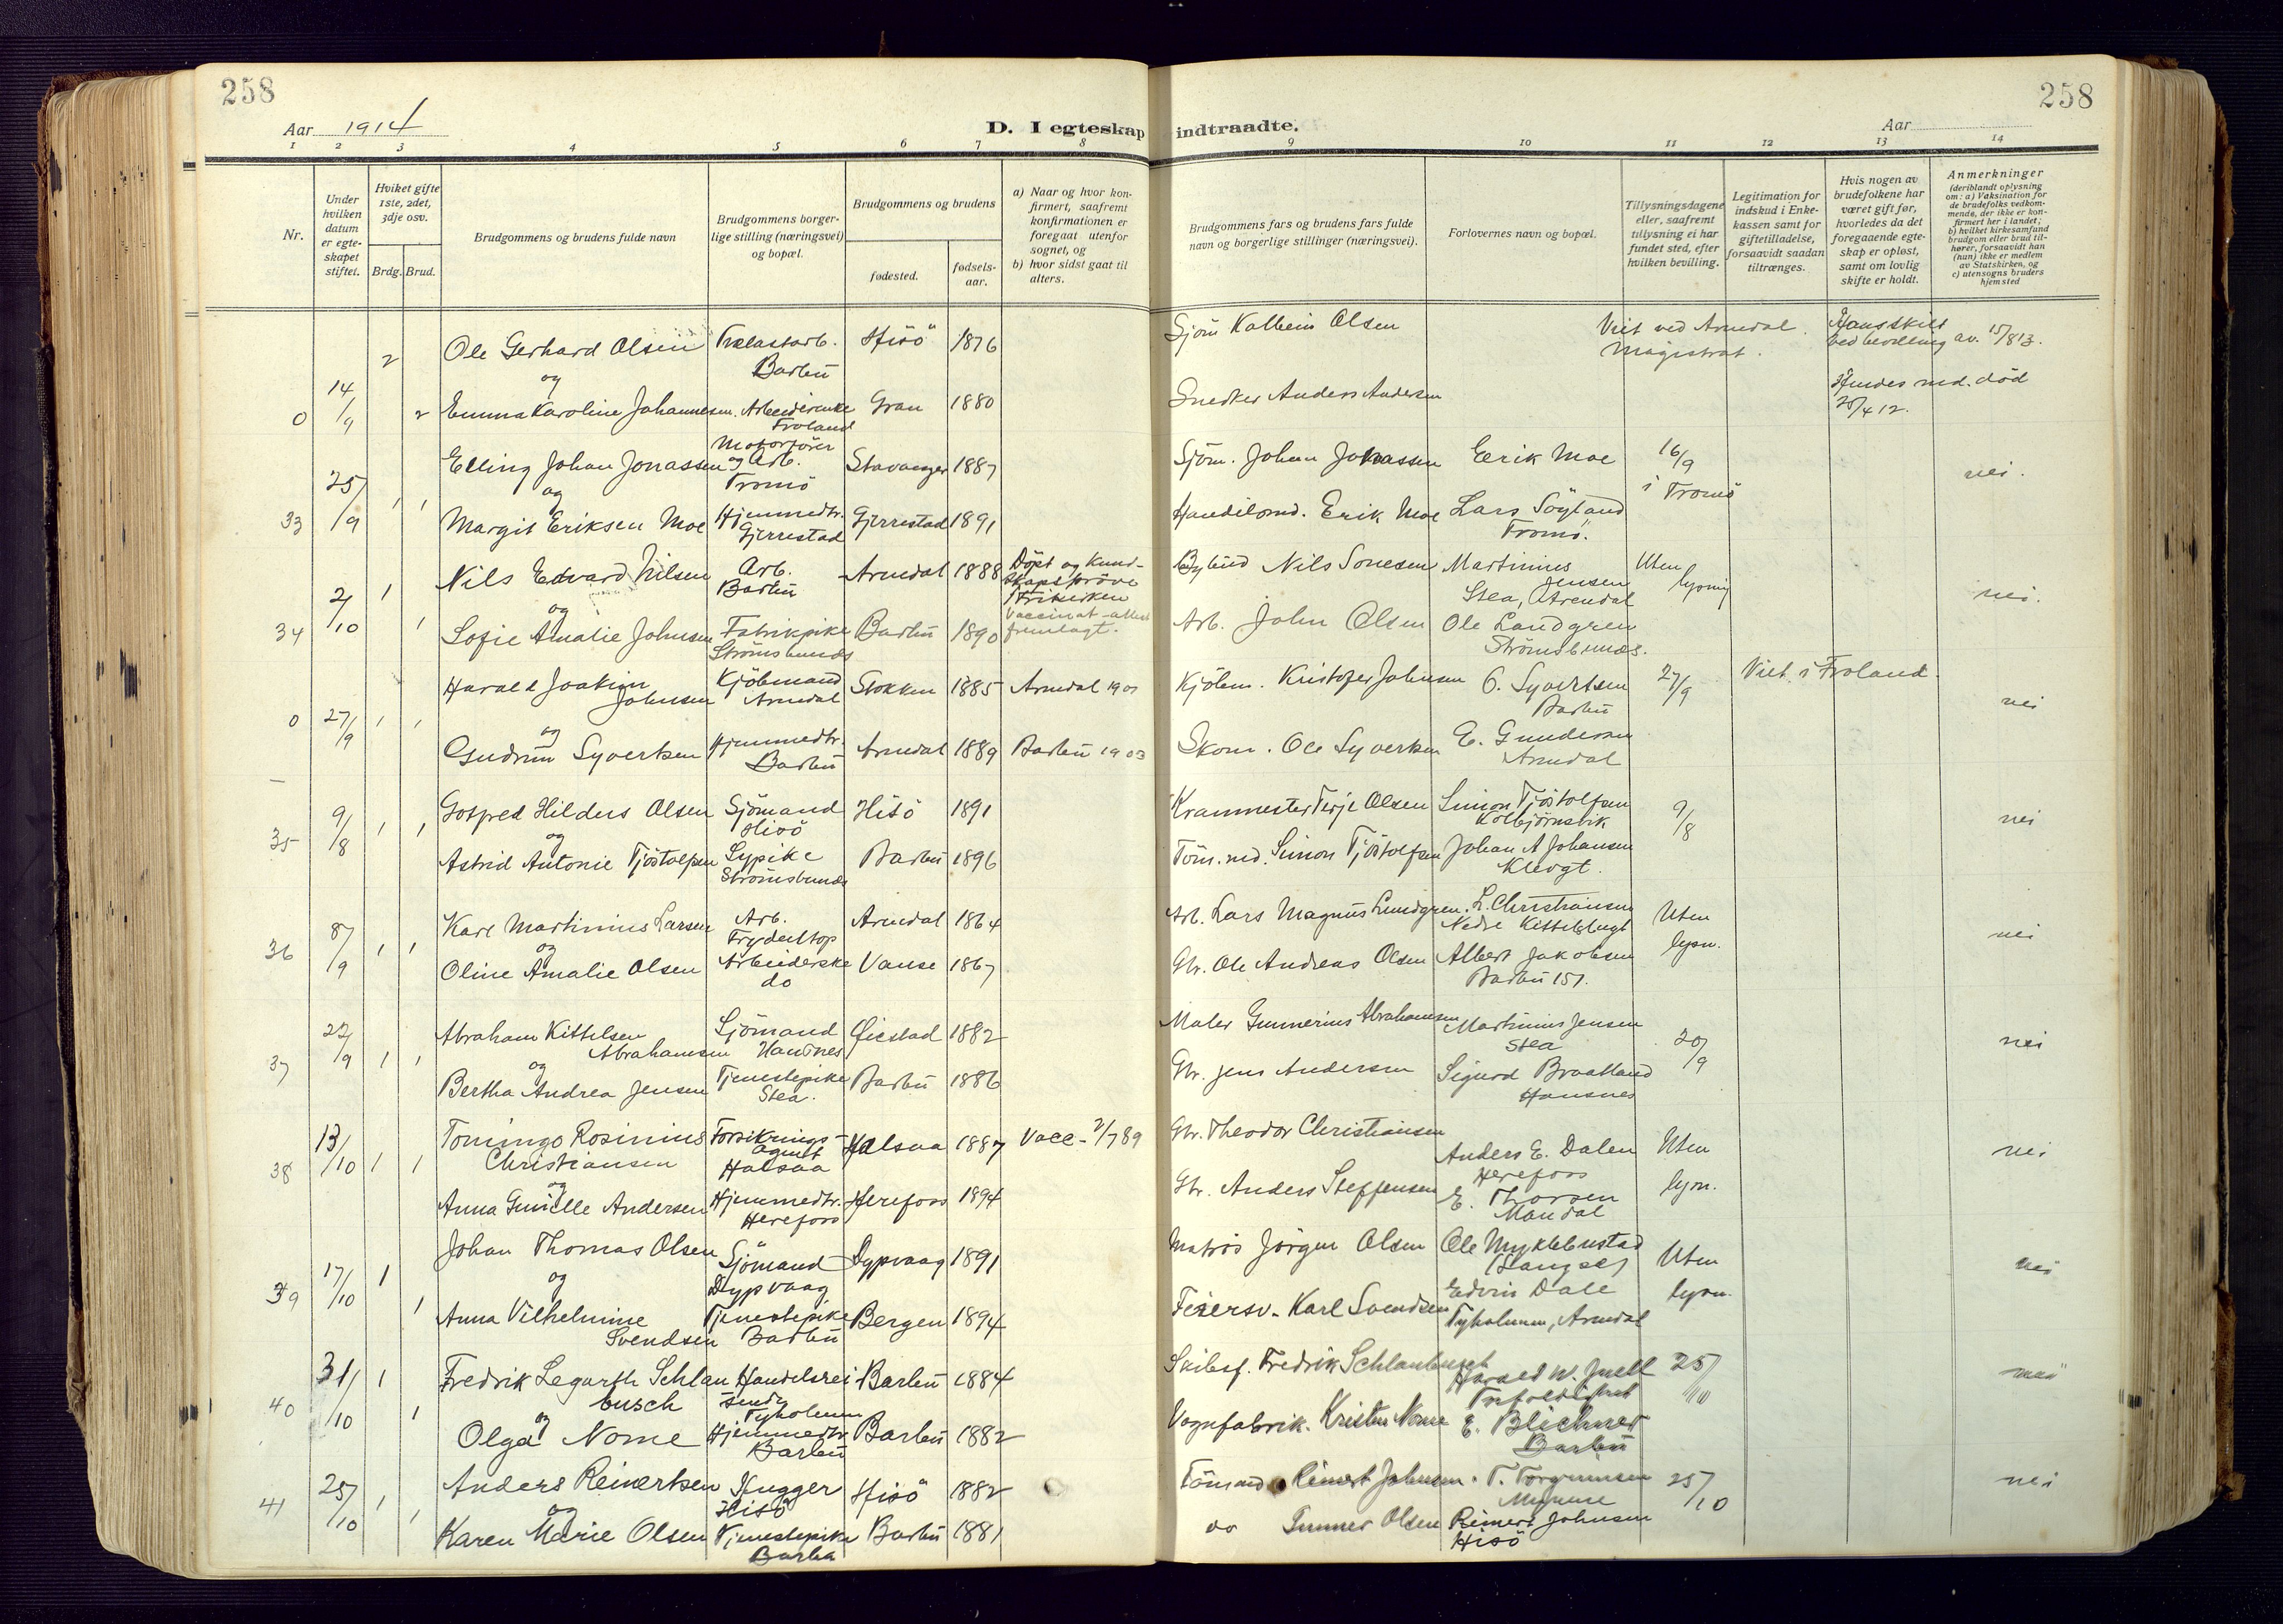 258
258
Aar 1914
D. I egteskap indtraadte.
Aar
1 2 3 4 5 6 7 8 9 10 11 12 13 14
Nr.
Under
hvilken
datum
er egte-
skapet
stiftet.
Hviket gifte
1ste, 2det,
3dje osv.
Brdg. Brud.
Brudgommens og brudens fulde navn
Brudgommens borger-
lige stilling (næringsvei)
og bopæl.
Brudgommens og brudens
fødested.
fødsels-
aar.
a) Naar og hvor kon-
firmert, saafremt
konfirmationen er
foregaat utenfor
sognet, og
b) hvor sidst gaat til
alters.
Brudgommens fars og brudens fars fulde
navn og borgerlige stillinger (næringsvei).
Forlovernes navn og bopæl.
Tillysningsdagene
eller, saafremt
tillysning ei har
fundet sted, efter
hvilken bevilling.
Legitimation for
indskud i Enke-
kassen samt for
giftetilladelse,
forsaavidt saadan
tiltrænges.
Hvis nogen av
brudefolkene har
været gift før,
hvorledes da det
foregaaende egte-
skap er opløst,
samt om lovlig
skifte er holdt.
Anmerkninger
(deriblandt oplysning
om: a) Vaksination for
de brudefolks vedkom-
mende, der ikke er kon-
firmert her i landet;
b) hvilket kirkesamfund
brudgom eller brud til-
hører, forsaavidt han
(hun) ikke er medlem
av Statskirken, og
c) utensogns bruders
hjemsted
2 Ole Gerhard Olsen Trælastarb. Hisö 1876 Sjöm Kolbein Olsen Viet ved Arendal Hans skilt
Barbu Magistrat. ved bevilling av 15/8 13.
og
0 14/9 2 Emma Karoline Johannesen. Arbeiderenke Gran 1880 Snedker Anders Andersen Hendes md. död
Froland 25/4 12.
Elling Johan Jonassen Motorförer Stavanger 1887 Sjöm. Johan Jonassen Eerik Moe 16/9 nei.
og Arb.
og Tromö i Tromö
33 25/9 1 1 Margit Eriksen Moe Hjemmedtr. Gjerrestad 1891 Handelsmd. Erik Moe Lars Söyland
Gjerrestad Tromö.
Nils Edvard Nilsen Arb. Arendal 1888 Döpt og Kund- Bybud Nils Sonesen Martinius Uten
Barbu skapspröve Jensen lysning nei.
i Frikirken Stea, Arendal
og
34 2/10 1 1 Sofie Amalie Johnsen Fabrikpike Barbu 1890 Vaccinat-attest Arb. John Olsen Ole Landgren
Strömsbunds fremlagt. Strömsbunds.
Harald Joakim Kjöbmand Stokken 1885 Arendal 1901 Kjöbm. Kristofer Johnsen O. Syvertsen 27/9 Viet i Froland.
Johnsen Arendal Barbu nei
0 27/9 1 1 og
Gudrun Syvertsen Hjemmedtr. Arendal 1889 Barbu 1903 Skom. Ole Syvertsen E. Gundersen
Barbu Arendal
Gotfred Hilders Olsen Sjömand Hisö 1891 Kranmester Terje Olsen Simon Tjöstolfsen 9/8 nei
Hisö Kolbjörnsvik
35 9/8 1 1 og
Astrid Antonie Tjöstolfsen Sypike Barbu 1896 Töm.md. Simon Tjöstolfsen Johan A Johansen
Strömsbunds
Karl Martinius Larsen Arb. Arendal 1864 Arb. Lars Magnus Lundgren. L. Christiansen Uten
Frydenltop Nedre Kittelsbugt lysn. nei
36 8/9 1 1 og
Oline Amalie Olsen Arbeiderske Vanse 1867 Gbr. Ole Andreas Olsen Albert Jakobsen
do Barbu 151.
Abraham Kittelsen Sjömand Øiestad 1882 Maler Gunnerius Abrahamsen Martinius Jensen 20/9 nei
Abrahamsen Stea
37 22/9 1 1 og
Bertha Andrea Jensen Tjenestepike Barbu 1886 Gbr. Jens Andersen Sigurd Braatland
Stea.
Tomingo Rosinius Forsikrings- Halsaa 1887 Vacc- 2/7 89 Gbr. Theodor Christiansen Anders E. Dalen Uten nei
Christiansen agent Herefoss
Halsaa
38 13/10 1 1 og
Anna Gunille Andersen Hjemmedtr. Herefoss 1894 Gbr. Anders Steffensen E. Thorsen lysn.
Herefoss Mandal
Johan Thomas Olsen Sjömand Dypvaag 1891 Matros Jörgen Olsen Ole Myklebustad Uten nei
Dypvaag
39 17/10 1 1 og
Anna Vilhelmine Tjenestepike Bergen 1894 Feiersv. Karl Svendsen Edvin Dale lysn.
Svendsen Barbu Tyholmen, Arendal
Fredrik Legarth Schlan Handelsrei- Barbu 1884 Skibsf. Fredrik Schlanbusch Harald W. Juell 25/10
busch sende
Tyholmen
40 31/10 1 1 og
Olga Nome Hjemmedtr. Barbu 1882 Vognfabrik. Kristen Nome E. Blichner
Barbu Barbu
Anders Reinertsen Hugger Hisö 1882 Tömmd Reinert Johnsen. T. Torgrimsen 25/10 nei
Hisö
41 25/10 1 1 og
Karen Marie Olsen Tjenestepike Barbu 1881 do Gunner Olsen Reinert Johnsen
Barbu Hisö